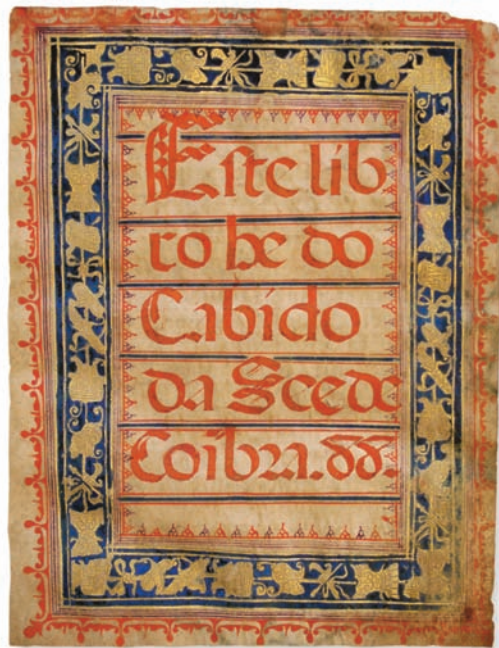 Este lib
ro he do
Cabido
da See de
Coibra.